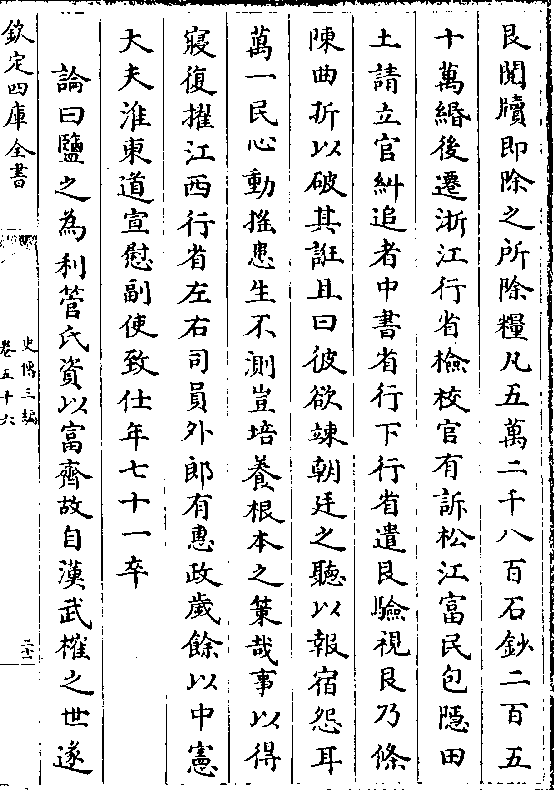 艮閲牘即除之所除糧凡五萬二千八百石鈔二百五
十萬緡後遷浙江行省檢校官有訴松江富民包隱田
土請立官糾追者中書省行下行省遣艮驗視艮乃條
陳曲折以破其誑且曰彼欲竦朝廷之聽以報宿怨耳
萬一民心動摇患生不測豈培養根本之䇿哉事以得
寢復擢江西行省左右司員外郎有惠政歲餘以中憲
大夫淮東道宣慰副使致仕年七十一卒
論曰鹽之為利管氏資以富齊故自漢武榷之世遂
欽定四庫全書
史傳三編
卷五十六